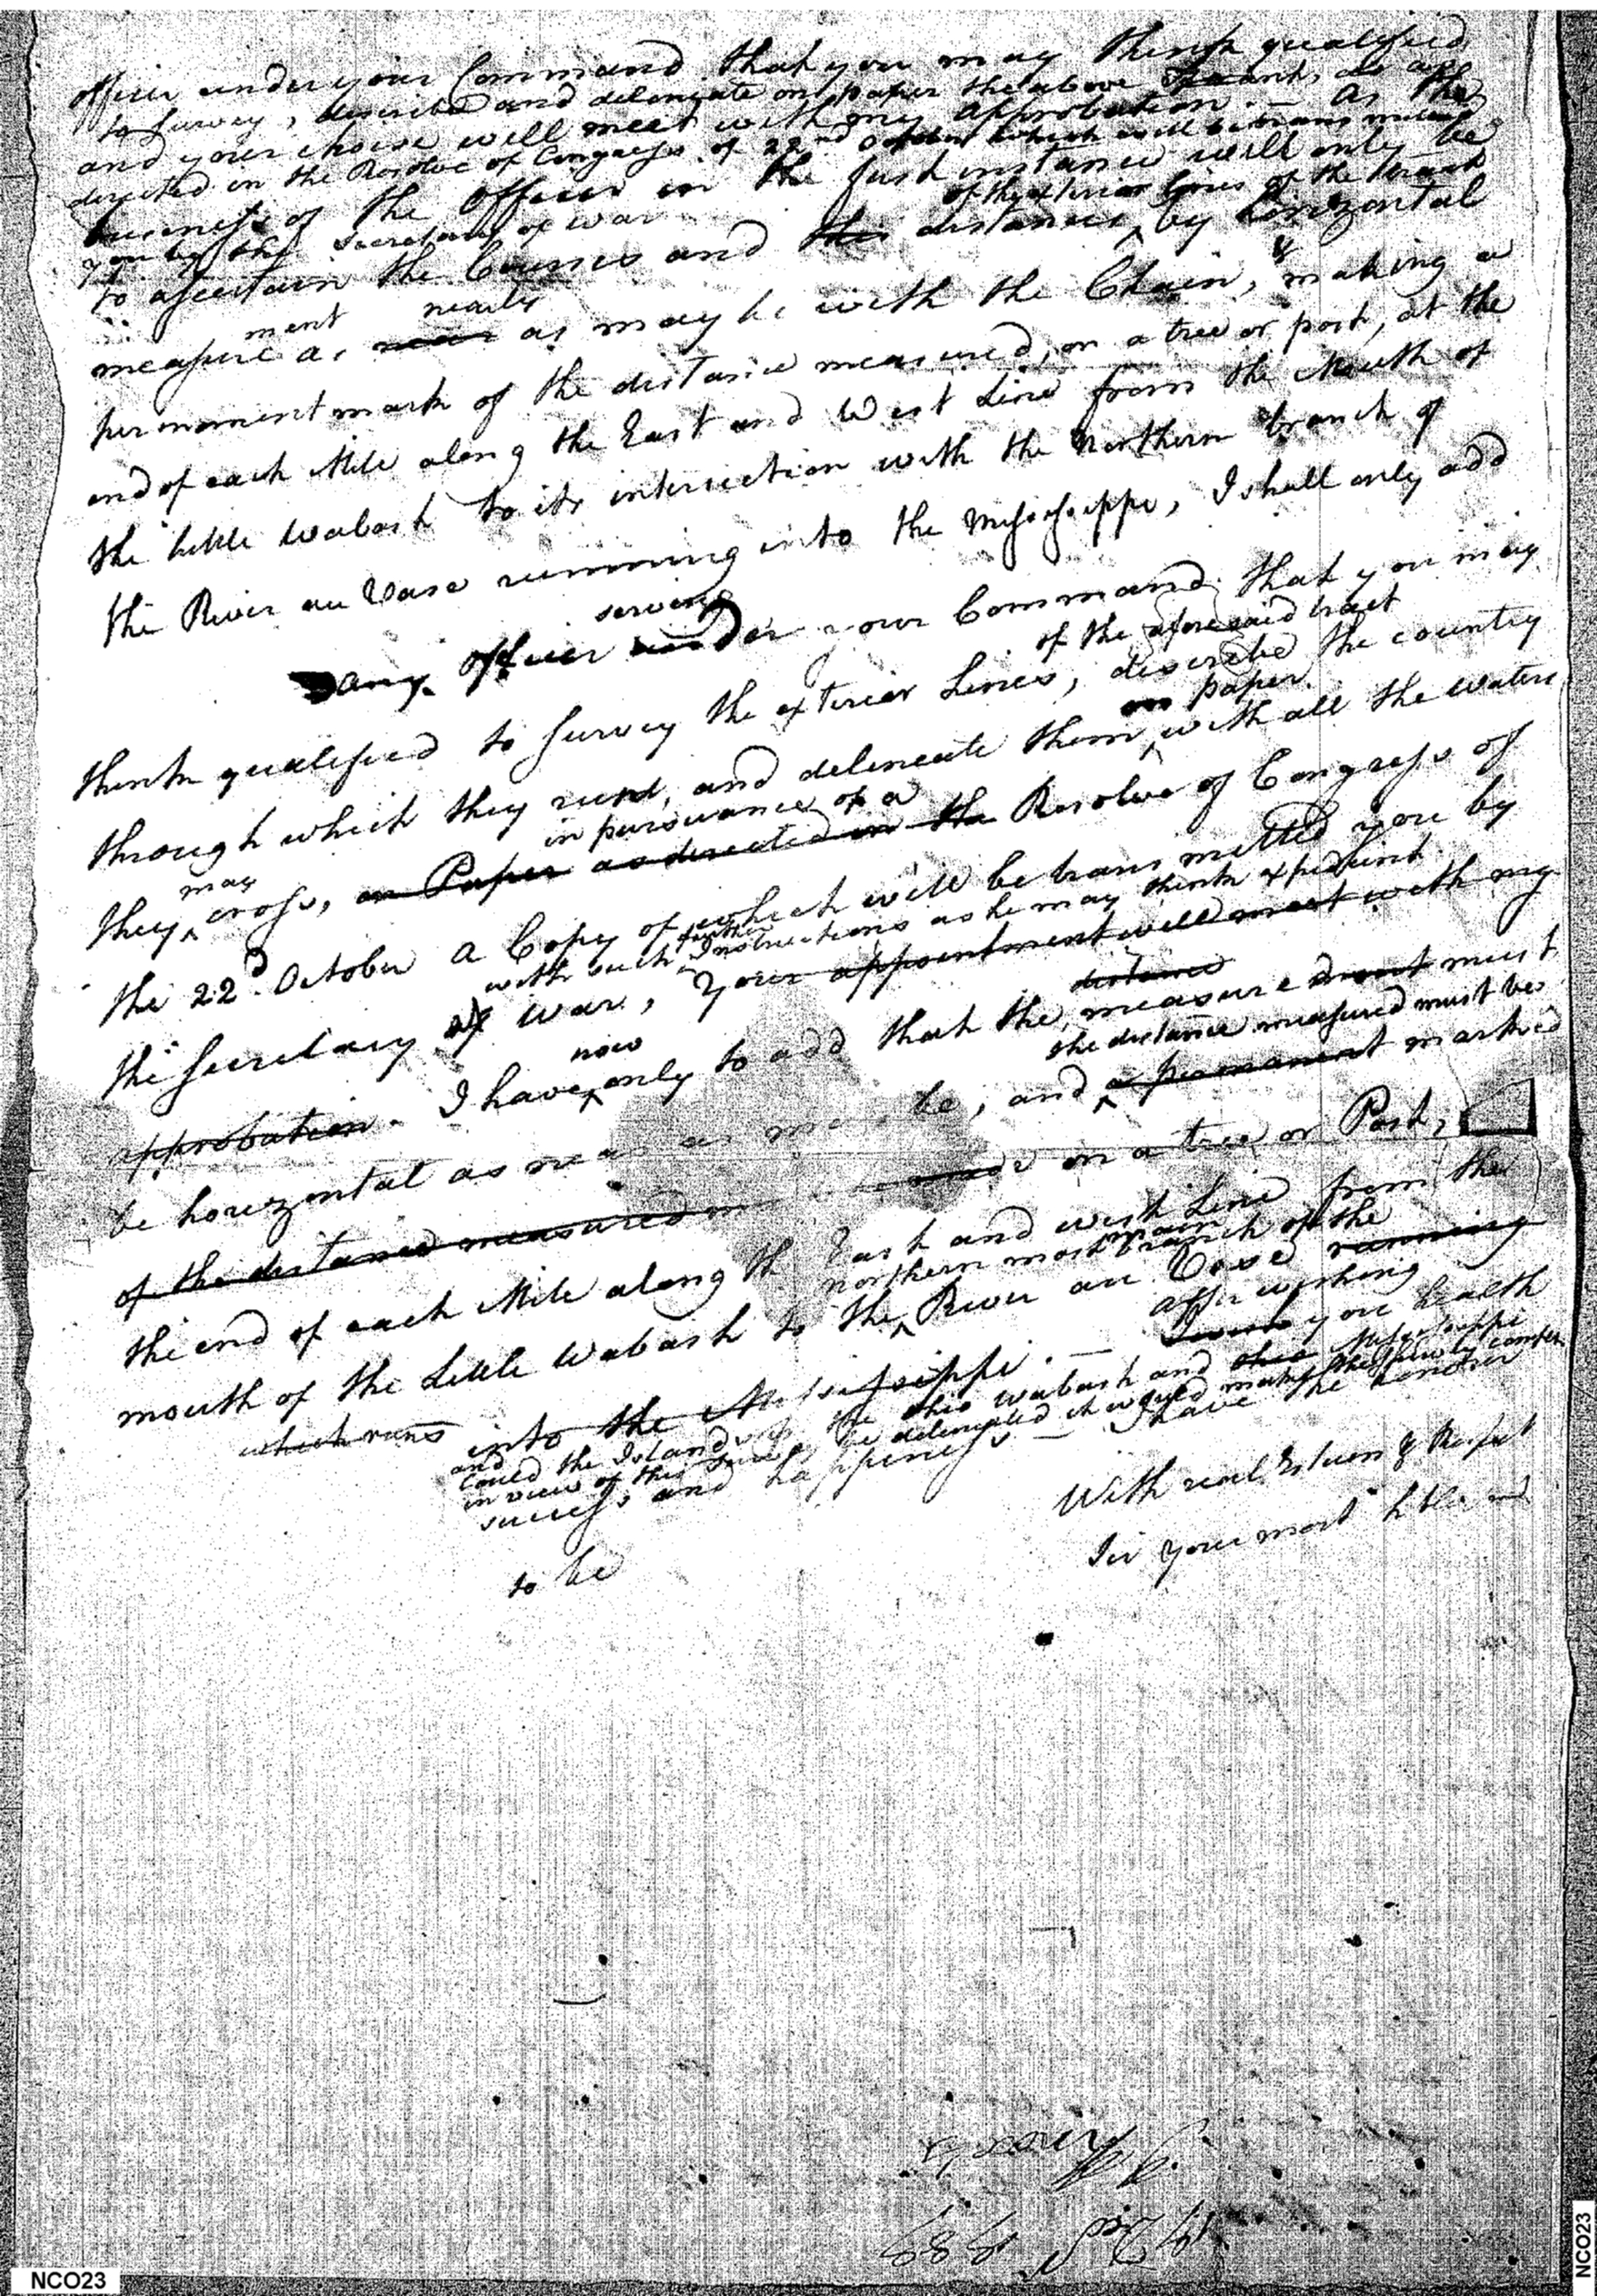 officer under your Command that you may think qualified
to survey, describe and delineate on paper the above
and your choise will meet with my approbation. — As the
directed in the Resolve of Congress of 22nd October which will be transmitted
business of the Officer in the first instance will only be
you by the Secretary of war
of the exterior lines of the tract
to ascertain the Courses and the distances by horizontal
ment nearly &
measure as near as may be with the Chain, making a
permanent mark of the distance measured, on a tree or post, at the
end of each Mile along the East and West Line from the Mouth of
the little Wabash to its intersection with the Northern branch of
the River au Vase running into the Mississippi, I shall only add
serving
any officer under your Command that you may
of the aforesaid tract
think qualified to survey the exterior Lines, describe the country
on paper
through which they run, and delineate them with all the waters
in pursuance of a
they may cross, on Paper as directed in the Resolve of Congress of
the 22d. October a Copy of which will be transmitted you by
with such further Instructions as he may think expedient.
the Secretary of War, Your appointment will meet with my
distance
approbation. I have now only to add that the measure must
the distance measured must be
be horizontal as near as may be, and a permanent marked
of the distance measured made on a tree or Post,
the end of each Mile along the East and west Line from the
northern most main branch of the
mouth of the Little Wabash to the River au Vase running
after wishing
which runs into the Mississippi. — I wish you health
and
Could the Islands in the Ohio Wabash and Mississippi
in view of this be delineated it would make the
success and happiness — I have the honor
With real Esteem & Respect
to be
Sir your most
1788